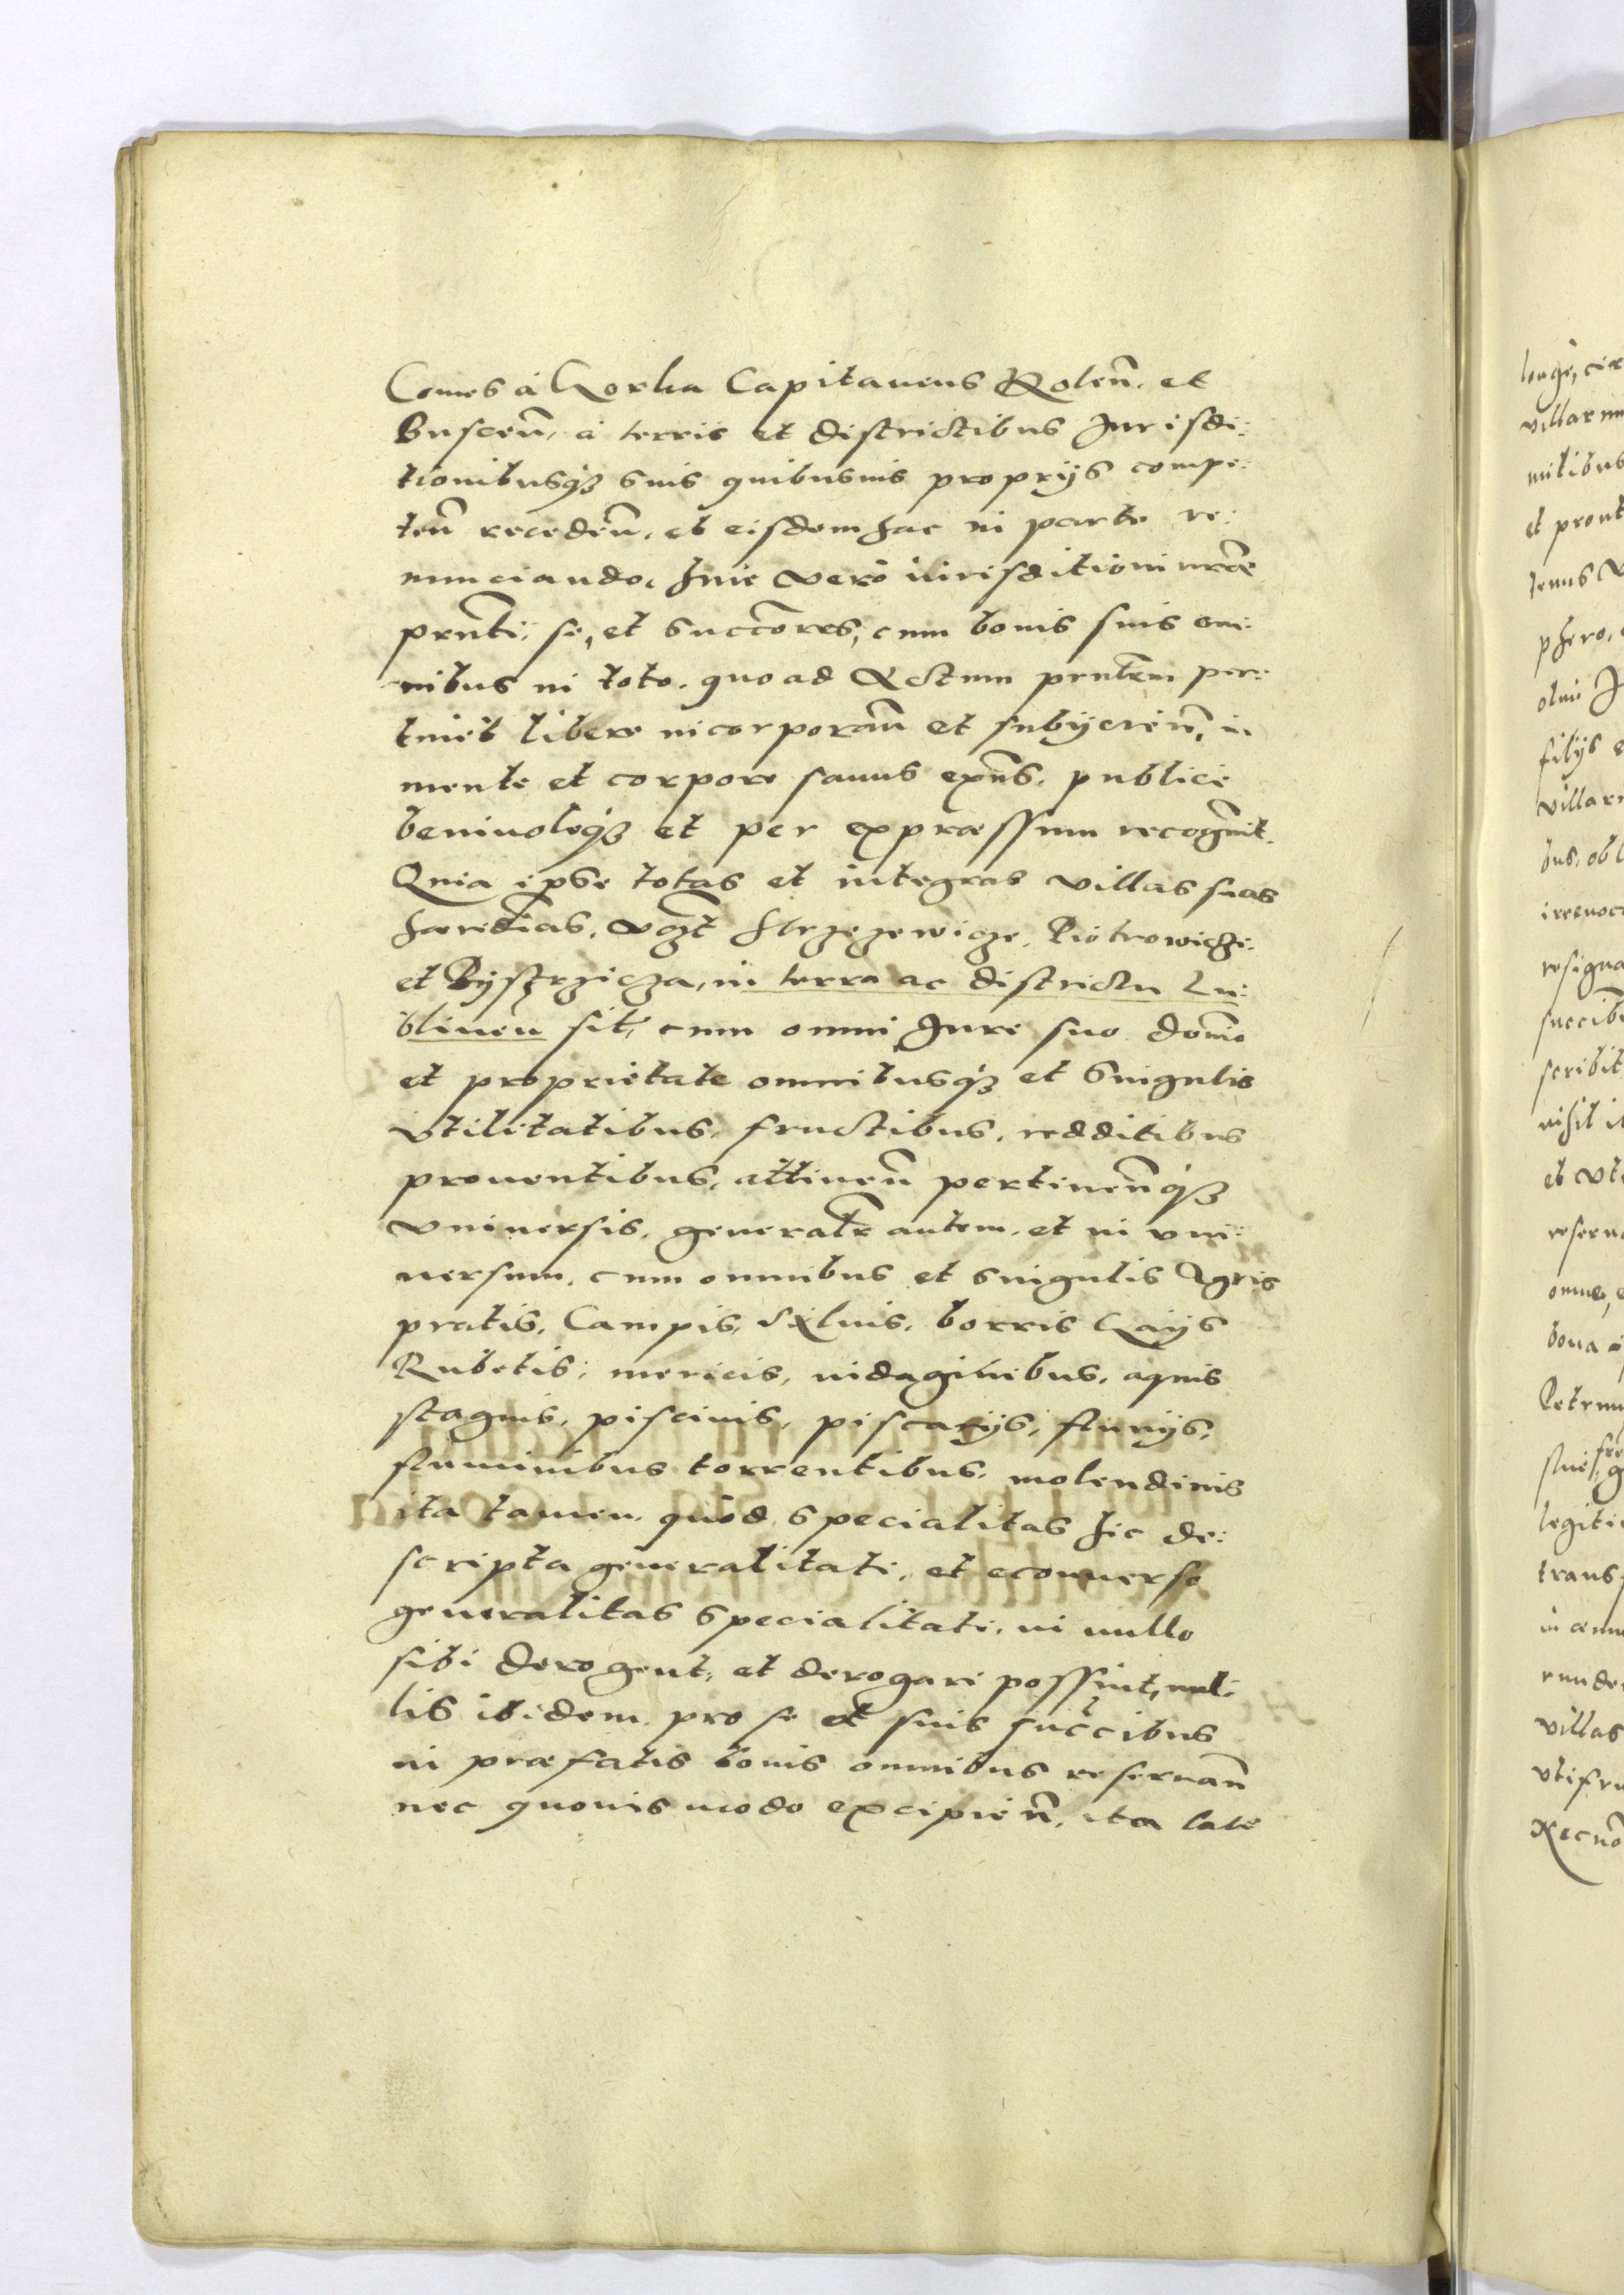 Comes à Gorka Capitaneus Kolen̄. et
Buscen̄, à terris et districtibus Jurisdi:
tionibusqꝫ suis quibusuis proprijs compe:
ten̄ receden̄. et eisdem hac in parte re:
nunciando. huic vero iurisditioni
prn̄ti, se, et succores, cum bonis suis om:
nibus in toto. quo ad Actum prn̄tem per:
tinet libere incorporan̄ et subijcien̄,
mente et corpore sanus exn̄s. publice
beniuoleqꝫ et per expraessum recognuit.
Quia ipse totas et integras villas suas
haeredias. vgt Strzezewicze. Piotrowicze.
et Bystrzicza, in terra ac districtu Lu:
blinen̄ sit, cum omni Jure suo domō
et proprietate omnibusqꝫ et singulis
vtilitatibus, fructibus, redditibus
prouentibus, attinen̄ pertinen̄qꝫ
vniuersis, generalr̄ autem, et in vni:
uersum, cum omnibus et singulis Agris
pratis, Campis, Siluis, borris Gaijs
Rubetis, mericis, indaginibus, aquis
stagnis, piscinis, piscarijs, fluuijs,
fluminibus torrentibus, molendinis
ita tamen, quòd specialitas hic de:
scripta generalitati, et econuerso
generalitas specialitati, in nullo
sibi derogent, et derogari possint, nul:
lis ibidem pro se et suis succibus
in praefatis bonis omnibus reseruan̄
nec quouis modo excipien̄, ita late
villarum
militibus
et prout
filijs
bus, obl
resigna
scribit
nihil it
omnes,
bona
trans
villas